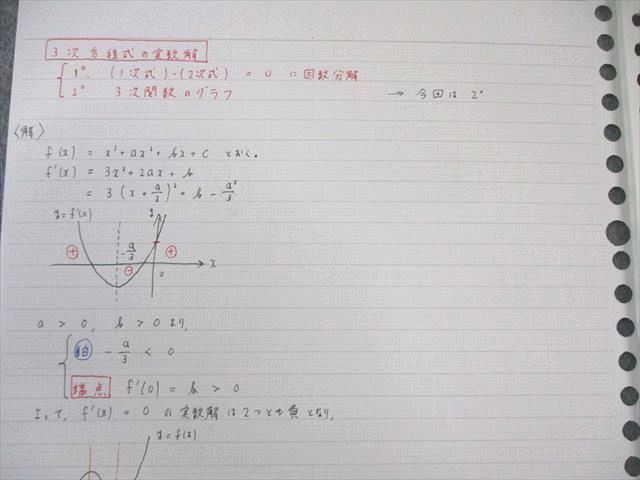 3次方程式の実数解
1°. (1次式)・(2次式) = 0 に因数分解
2° 3次関数のグラフ → 今回は 2°
〈解〉
f(x) = x³ + ax² + bx + c とおく。
f'(x) = 3x² + 2ax + b
= 3(x + a/3)² + b - a²/3
y=f'(x) y
⊕ -a/3 ⊕
⊖ 0 x
a > 0, b > 0 より,
軸 -a/3 < 0
端点 f'(0) = b > 0
よって, f'(x) = 0 の実数解は2つとも負となり,
y=f(x)